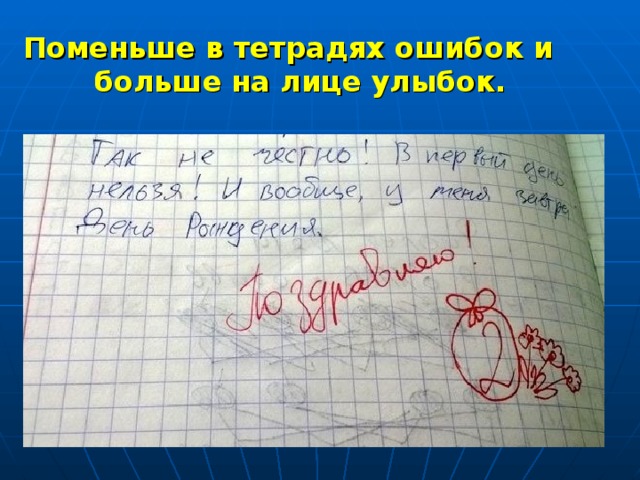 Поменьше в тетрадях ошибок и
больше на лице улыбок.
Так не честно! В первый день
нельзя! И вообще, у меня завтра
День Рождения.
Поздравляю!
2